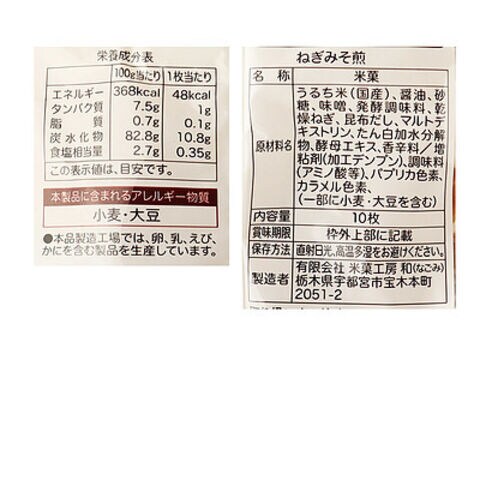 栄養成分表
100g当たり 1枚当たり
エネルギー 368kcal 48kcal
タンパク質 7.5g 1g
脂質 0.7g 0.1g
炭水化物 82.8g 10.8g
食塩相当量 2.7g 0.35g
この表示値は、目安です。
本製品に含まれるアレルギー物質
小麦・大豆
●本品製造工場では、卵、乳、えび、
かにを含む製品を生産しています。
ねぎみそ煎
名称 米菓
原材料名
うるち米(国産)、醤油、砂
糖、味噌、発酵調味料、乾
燥ねぎ、昆布だし、マルトデ
キストリン、たん白加水分解
物、酵母エキス、香辛料/増
粘剤(加工デンプン)、調味料
(アミノ酸等)、パプリカ色素、
カラメル色素、
(一部に小麦・大豆を含む)
内容量 10枚
賞味期限 枠外上部に記載
保存方法 直射日光、高温多湿をお避けください。
製造者
有限会社 米菓工房 和(なごみ)
栃木県宇都宮市宝木本町
2051-2